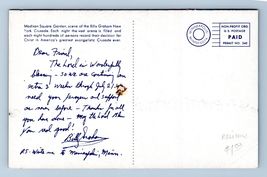 Madison Square Garden, scene of the Billy Graham New
York Crusade. Each night the vast arena is filled and
each night hundreds of persons record their decision for
Christ in America's greatest evangelistic Crusade ever.
NON-PROFIT ORG
U. S. POSTAGE
PAID
PERMIT NO.
Dear Friend,
The Lord is Wonderfully
blessing - so we are continuing
extra 3 weeks through July 21
need your prayers and support
as never before - Thanks for all
you have done - may the Lord bless
you real good!
Billy Graham
P.S. Write me to Minneapolis, Minn.